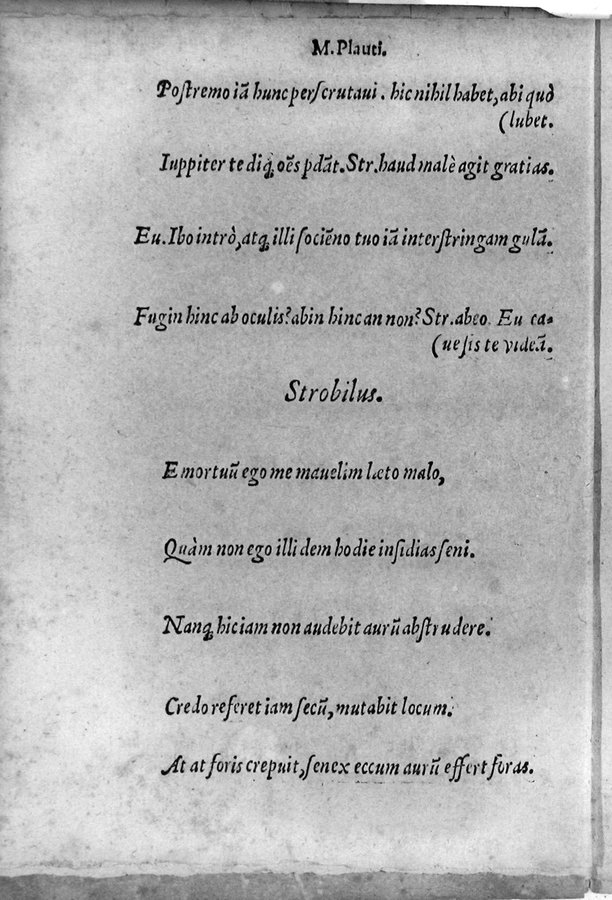 M. Plauti.
Poſtremo iã hunc perſcrutaui. hic nihil habet, abi quò
(lubet.
Iuppiter te diq́; oẽs pdãt. Str. haud malè agit gratias.
Eu. Ibo intrò, atq́; illi ſociẽno tuo iã interſtringam gulã.
Fugin hinc ab oculis? abin hinc an non? Str. abeo. Eu ca-
(ue ſis te videã.
Strobilus.
Emortuũ ego me mauelim læto malo,
Quàm non ego illi dem hodie inſidias ſeni.
Nanq́; hic iam non audebit aurũ abſtrudere.
Credo referet iam ſecũ, mutabit locum.
At at foris crepuit, ſenex eccum aurũ effert foras.